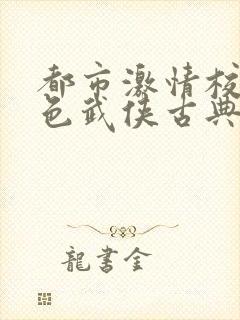 都市激情校
色武侠古典
龍書金